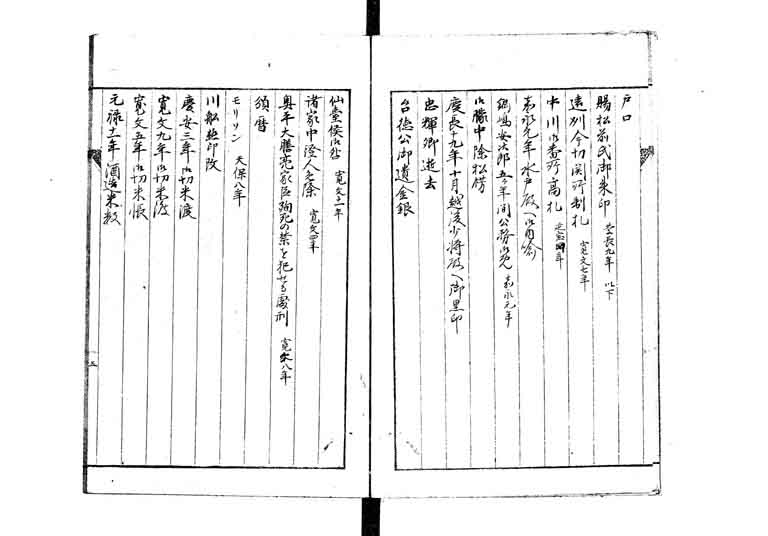 戸口
賜松前氏御朱印 慶長九年 以下
遠州今切関所制札 寛文七年
中川御番所高札
嘉永元年水戸殿へ御内諭
鍋嶋安次郎五ケ年間公務御免 嘉永元年
御簾中除松榜
慶長十九年十月越後少将殿へ御黒印
忠輝卿逝去
台徳公御遺金銀
仙台侯 寛文十一年
諸家中證人免除 寛文四年
奥平大膳亮家臣殉死の禁を犯せる處刑 寛文八年
頒暦
モリソン 天保八年
川船極印改
慶安三年御切米渡
寛文九年御切米渡
寛文五年御切米帳
元禄十一年酒造米数